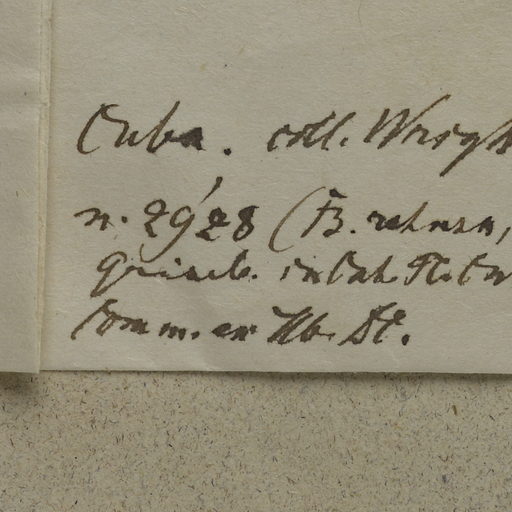 Cuba. coll. Wright
n. 2928 (B. retusa,
Griseb. in Cat. Pl. Cu
Comm. ex Hb. DC.